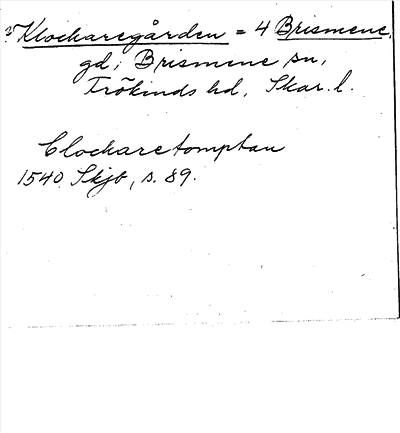 Klockaregården = 4 Brismene,
gd; Brismene sn,
Frökinds hd, Skar. l.
Clockaretomptan
1540 Skjb, s. 89.